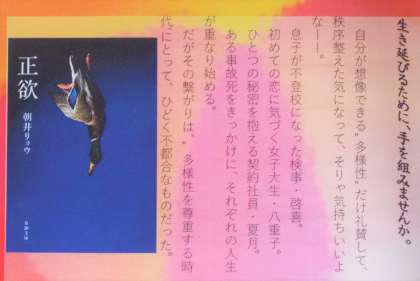 生き延びるために、手を組みませんか。
自分が想像できる"多様性"だけ礼賛して、
秩序整えた気になって、そりゃ気持ちいいよ
なーー。
息子が不登校になった検事・啓喜。
初めての恋に気づく女子大生・八重子。
ひとつの秘密を抱える契約社員・夏月。
ある事故死をきっかけに、それぞれの人生
が重なり始める。
だがその繋がりは、"多様性を尊重する時
代"にとって、ひどく不都合なものだった。
正欲
朝井リョウ
新潮文庫